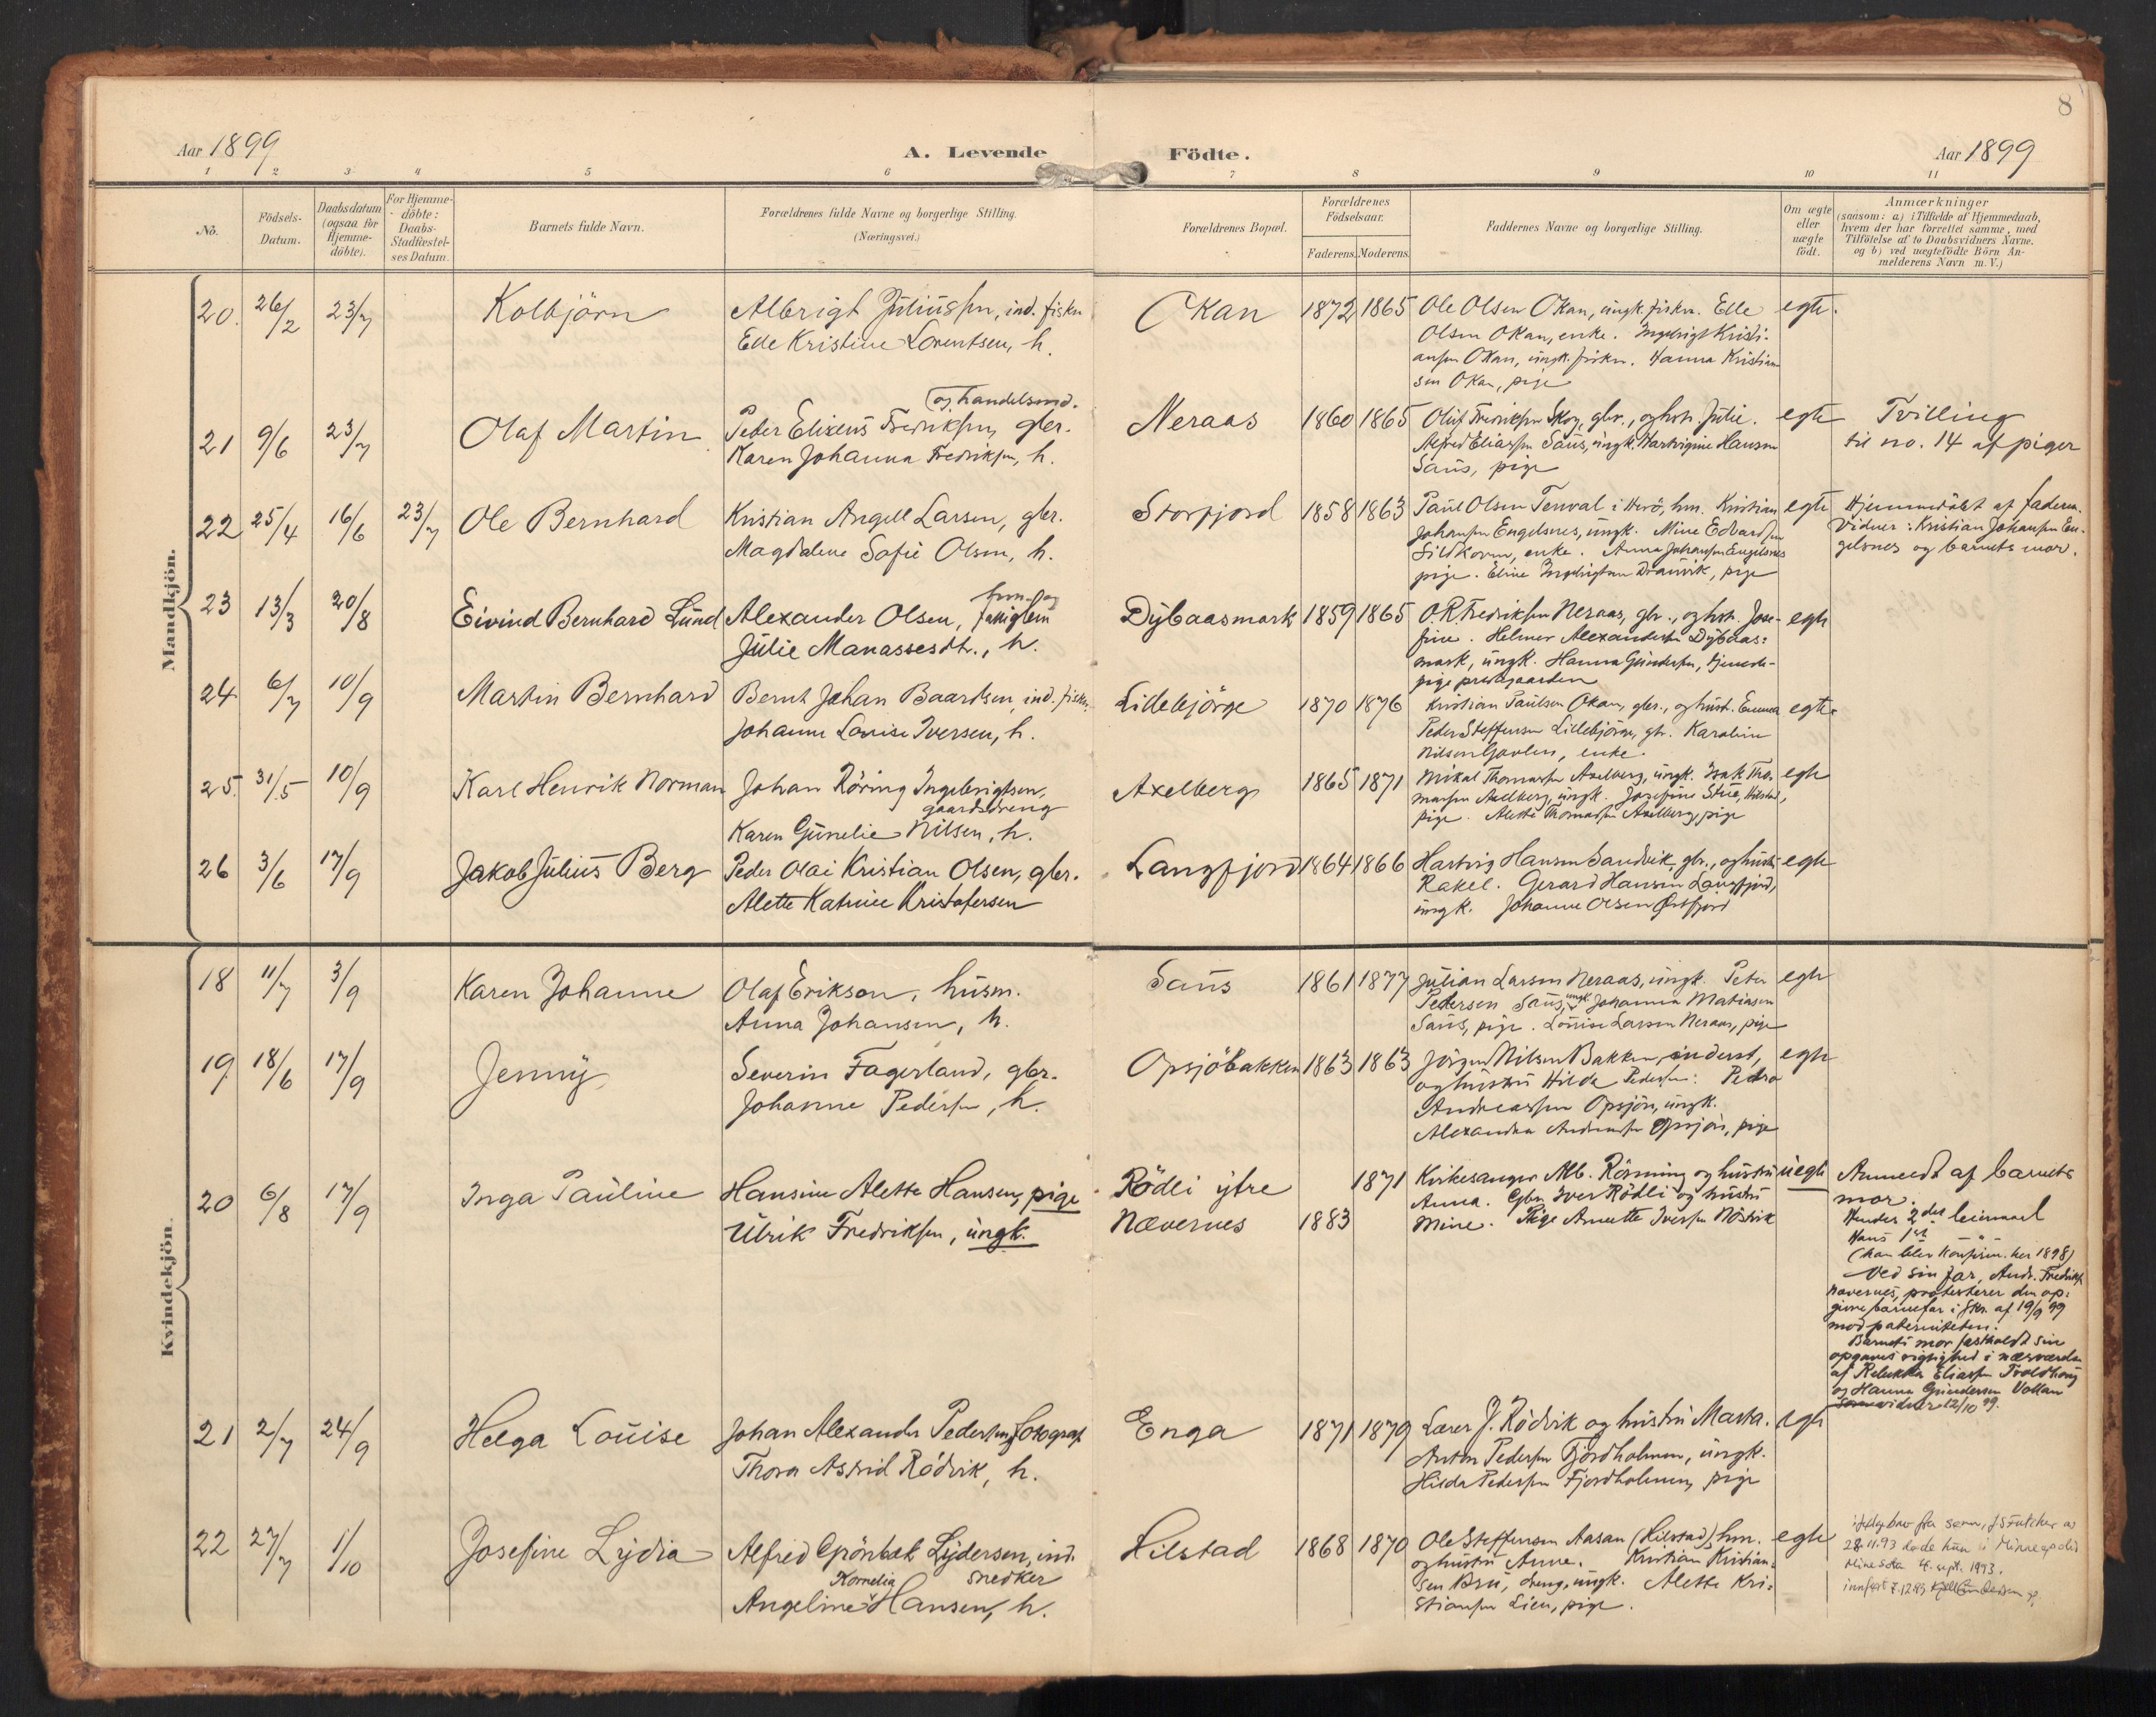 8
Aar 1899 A. Levende Födte. Aar 1899
1 2 3 4 5 6 7 8 9 10 11
No.
Födsels-Datum.
Daabsdatum (ogsaa for Hjemme-döbte).
For Hjemme-döbte: Daabs-Stadfæstel-ses Datum.
Barnets fulde Navn.
Forældrenes fulde Navne og borgerlige Stilling.
(Næringsvei.)
Forældrenes Bopæl.
Forældrenes Födselsaar.
Faderens. Moderens.
Faddernes Navne og borgerlige Stilling.
Om ægte eller uægte födt.
Anmærkninger
(saasom: a) i Tilfælde af Hjemmedaab,
hvem der har forrettet samme, med
Tilföielse af to Daabsvidners Navne,
og b) ved uægtefödte Börn An-
melderens Navn m. V.)
Mandkjön.
20. 26/2 23/7 Kolbjörn Albrigt Juliussen, ind. fisker Okan 1872 1865 Ole Olsen Okan, ungk. fisker. Elle egte.
Elle Kristine Lorentsen, h. Olsen Okan, enke. Ingebrigt Kristi-
ansen Okan, ungk. fisker. Hanna Kristian
sen Okan, pige
og handelsmd.
21 9/6 23/7 Olaf Martin Peder Elizeus Fredriksen, gbr. Neraas 1860 1865 Oluf Fredriksen Skog, gbr., og hstr. Julie. egte Tvilling
Karen Johanna Fredriksen, h. Alfred Eliassen Saus, ungk. Hartvigine Hansen til no. 14 af piger
Saus, pige
22 25/4 16/6 23/7 Ole Bernhard Kristian Angell Larsen, gbr. Storfjord 1858 1863 Paul Olsen Tenval i Herö, hm. Kristian egte Hjemmedöbt af faderen.
Magdalene Sofie Olsen, h. Johansen Engelsnes, ungk. Mine Edvardsen Vidner: Kristian Johansen En-
Sildkoven, enke. Anna Johansen Engelsnes gelsnes og barnets mor.
pige. Eline Ingebrigtsen Drausvik, pige
23 13/3 20/8 Eivind Bernhard Lund Alexander Olsen, Dybaasmark 1859 1865 O.R. Fredriksen Neraas, gbr., og hstr. Jose- egte
Julie Manassesdtr., h. fine. Helmer Alexandersen Dybaas-
mark, ungk. Hanna Gundersen, tjeneste-
pige prestegaarden
24 6/7 10/9 Martin Bernhard Bernt Johan Baardsen, ind. fisker. Lillebjörge 1870 1876 Kristian Paulsen Okan, gbr., og hust. Emma egte.
Johanne Louise Iversen, h. Peder Steffensen Lillebjörge, gbr. Karoline
Nilsen Govlen, enke.
25. 31/5 10/9 Karl Henrik Norman Johan Röring Ingebrigtsen, Axelberg 1865 1871 Mikal Thomassen Axelberg, ungk. Isak Tho- egte
gaardsdreng massen Axelberg, ungk. Josefine Strø, Hilstad,
Karen Gunelie Nilsen, h. pige. Alette Thomassen Axelberg, pige
26 3/6 17/9 Jakob Julius Berg Peder Olai Kristian Olsen, gbr. Langfjord 1864 1866 Hartvig Hansen Sandvik, gbr., og hustr. egte
Alette Katrine Kristofersen Rakel. Gerard Hansen Langfjord,
ungk. Johanne Olsen Østfjord
Kvindekjön.
18 11/7 3/9 Karen Johanne Olaf Erikson, husm. Saus 1861 1877 Julian Larsen Neraas, ungk. Peter egte
Anna Johansen, h. Pedersen Saus, ungk. Johanna Matiasen
Saus, pige. Louise Larsen Neraas, pige
19. 18/6 17/9 Jenny Severin Fagerland, gbr. Opsjöbakken 1863 1863 Jörgen Nilsen Bakken, inderst, egte
Johanne Pedersen, h. og hustru Hilda Pedersen. Pedro
Andreassen Opsjön, ungk.
Alexandra Andreassen Opsjön, pige
20 6/8 17/9 Inga Pauline Hansine Alette Hansen, pige Rödli ytre 1871 Kirkesanger Alb. Rösning og hustru uegte Anmeldt af barnets
Ulrik Fredriksen, ungk. Nævernes 1883 Anna. Gbr. Iver Rödli og hustru mor.
Mine. Pige Anette Iversen Nösvik Hendes 2det leiermaal
Hans 1ste — " —
(han blev konfirm. her 1898)
Ved sin far, Andr. Fredriks.
Nævernes, protesterer den op-
givne barnefar i skr. af 19/9 99
mod paterniteten.
Barnets mor fastholdt sin
opgaves rigtighed i nærværelse
af Rebekka Eliassen Troldhaug
og Hanna Gundersen Vollan
som vidner 12/10 99.
21 2/7 24/9 Helga Louise Johan Alexander Pedersen, fotograf Enga 1871 1879 Lærer J. Rödvik og hustru Marta. egte
Thora Astrid Rödvik, h. Anton Pedersen Fjordholmen, ungk.
Hilda Pedersen Fjordholmen, pige
22 27/7 1/10 Josefine Lydia Alfred Grönbæk Lydersen, ind. Hilstad 1868 1870 Ole Steffensen Aasan (Hilstad), hm. egte ifølg brev fra sønn, J S Futcher av
snedker og hustru Anne. Kristian Kristian- 28.11.93 døde hun i Minneapolis
Kornelia sen Bru, dreng, ungk. Alette Kri- Minesota 4. sept. 1993.
Angeline Hansen, h. stiansen Lien, pige. innført 7.12.93